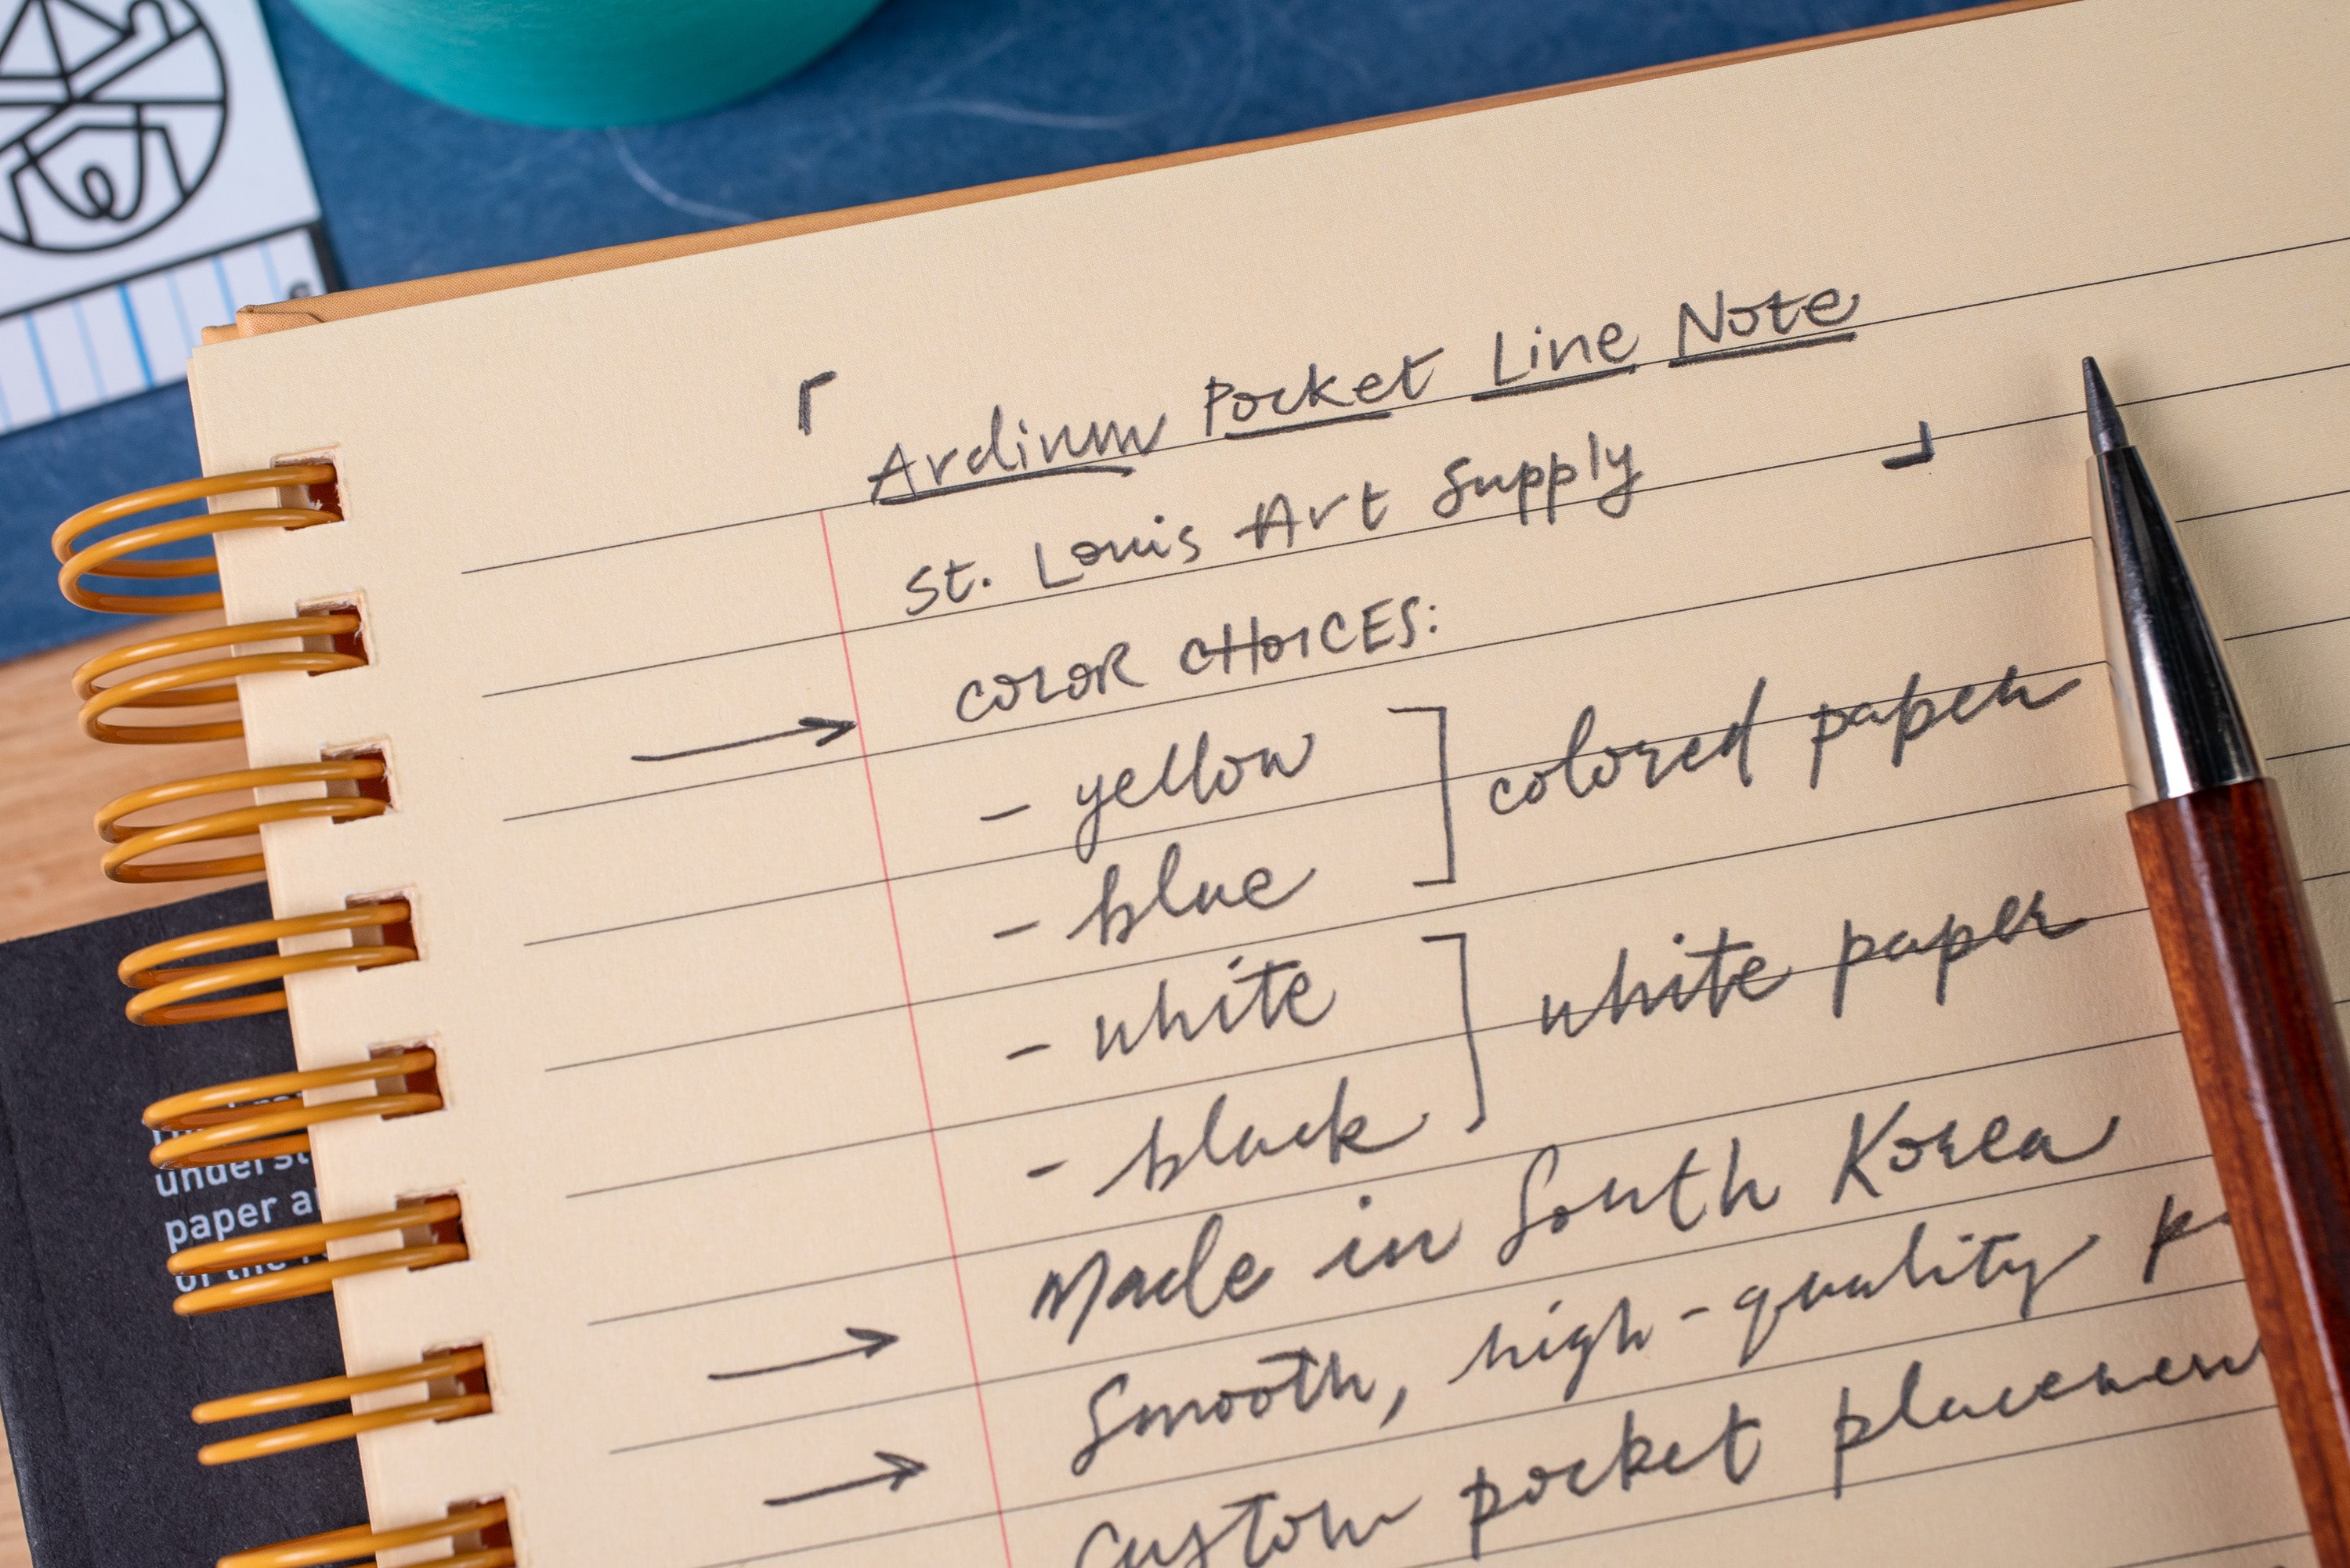 Ardium Pocket Line Note
St. Louis Art Supply
COLOR CHOICES:
- yellow
- blue
colored paper
- white
- black
white paper
Made in South Korea
Smooth, high-quality
Custom pocket
paper
of the